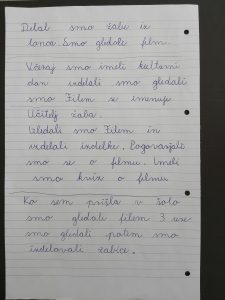 Delal smo žabe iz
lanca. Smo gledali film.
Včeraj smo imeli kulturni
dan izdelali smo gledali
smo Film se imenuje
Učitelj žaba.
Gledali smo Film in
izdelali izdelke. Pogovarjali
smo se o filmu. Imeli
smo kviz o filmu
Ko sem prišla v šolo
smo gledali filem 3 ure
smo gledali potem smo
izdelovali žabice.